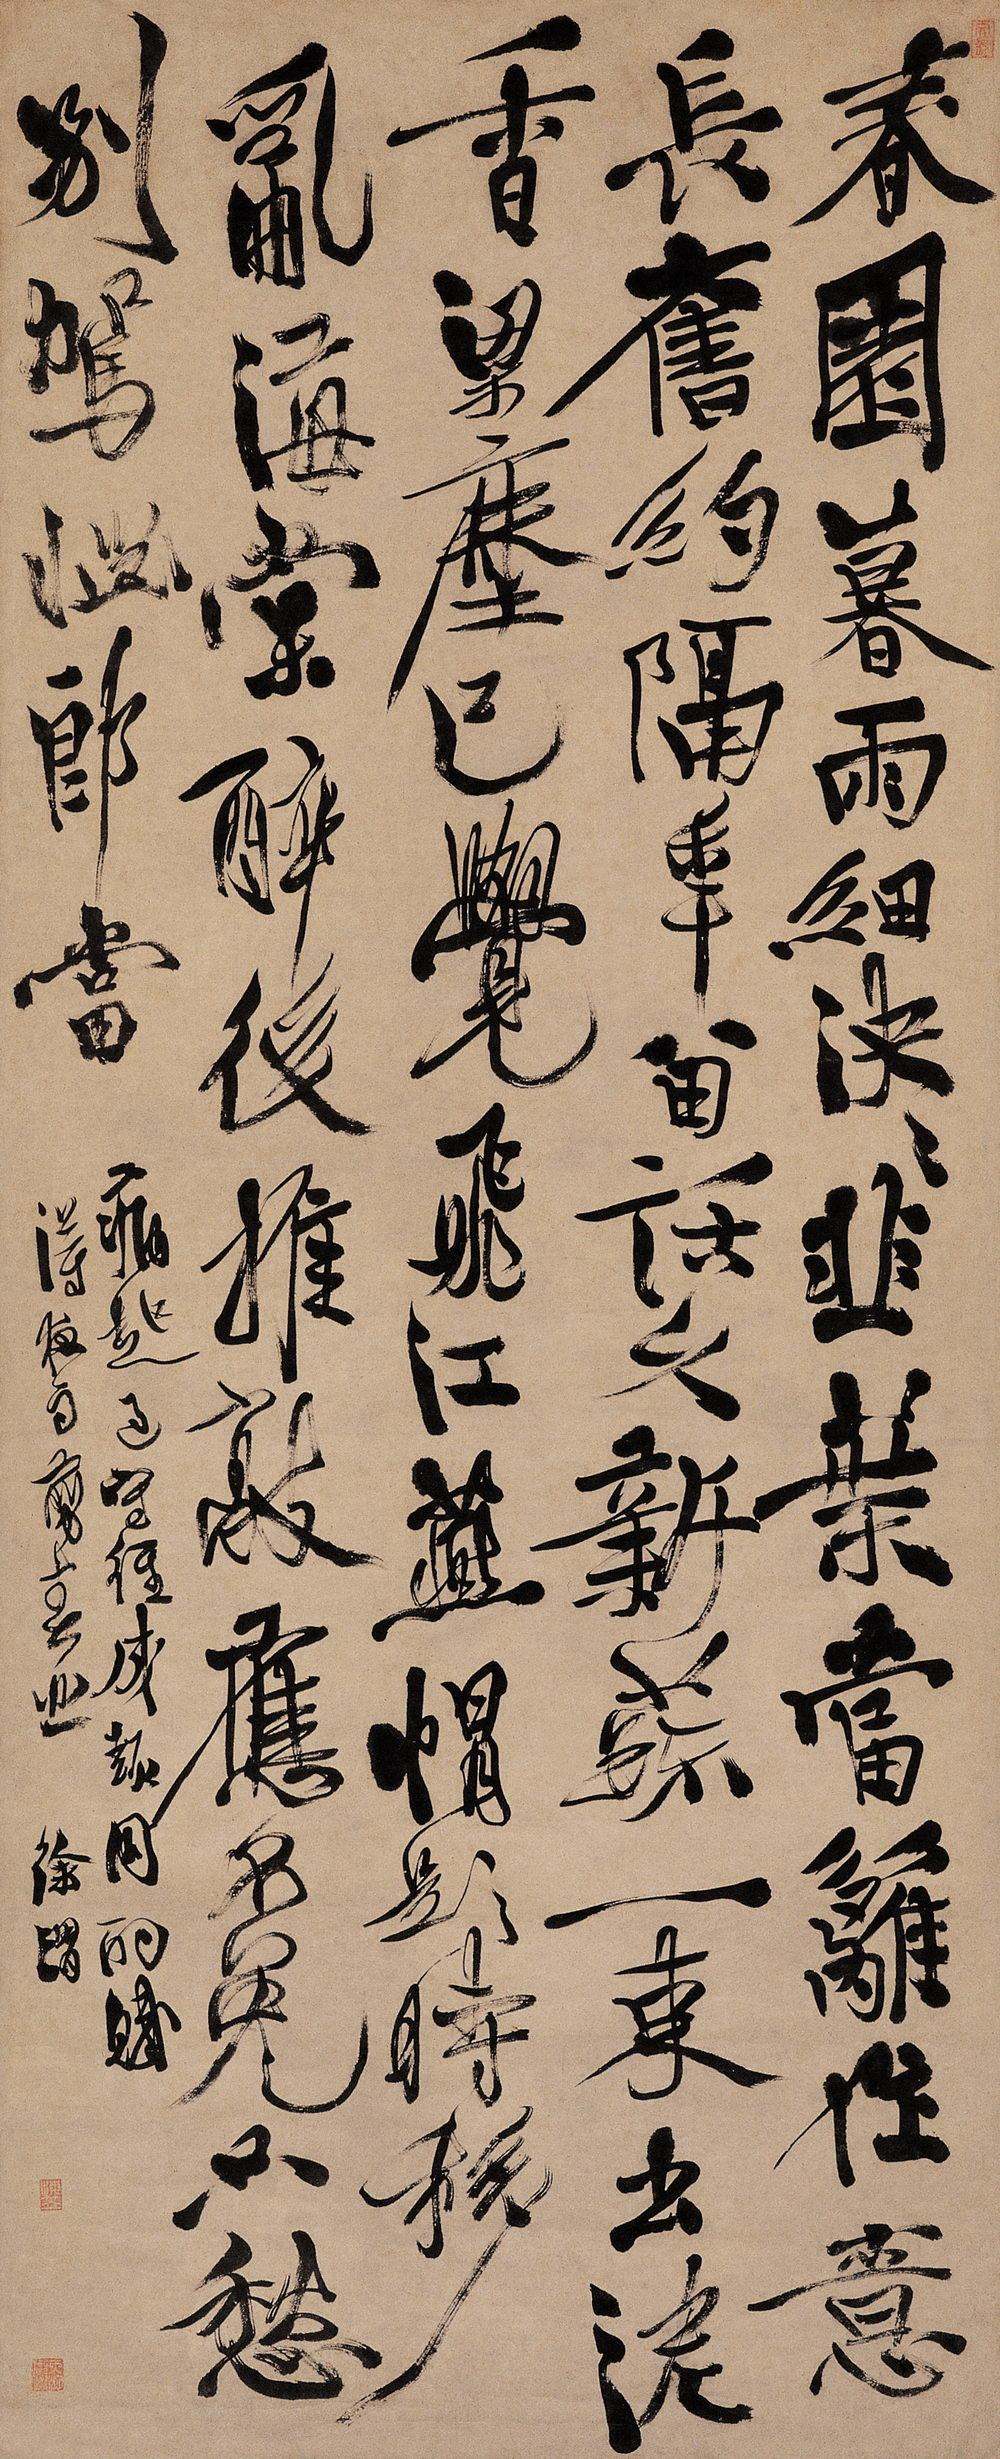 春園暮雨細泱泱韭葉當籬作意
長舊約隔年留話久新蔬一束出泥
香梁塵已覺飛江燕帽影時移
亂海棠醉後推敲應不免只愁
別駕惱郎當
病起過 徑成款同 賦
得夜雨剪春韭 徐渭